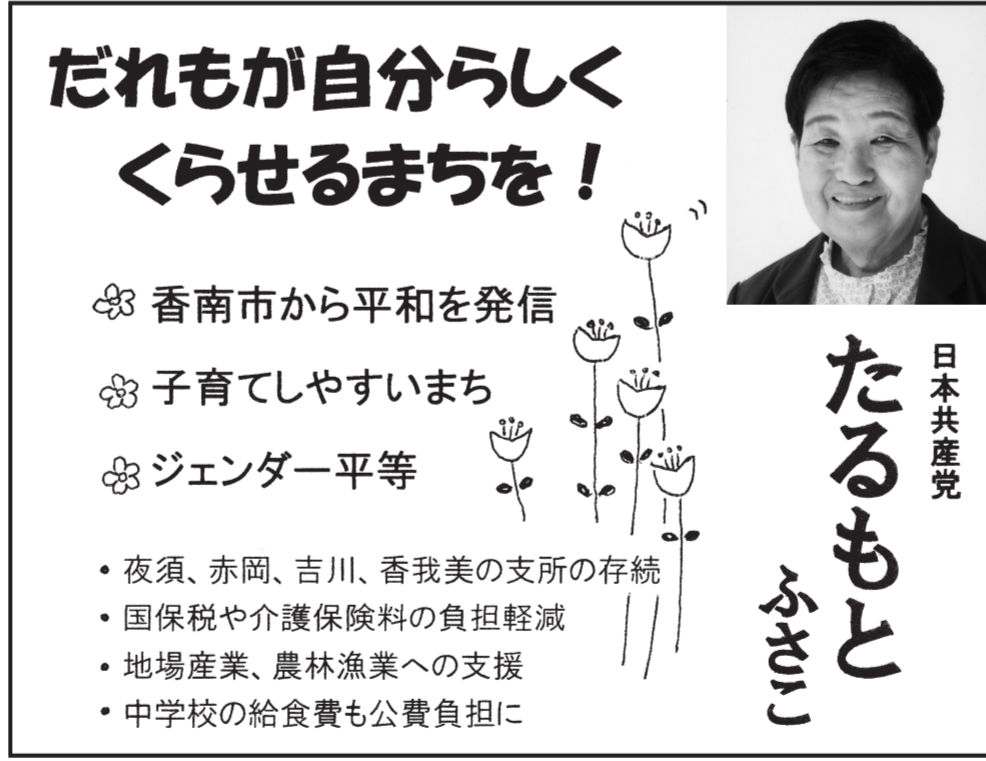 だれもが自分らしく
くらせるまちを！
香南市から平和を発信
子育てしやすいまち
ジェンダー平等
・夜須、赤岡、吉川、香我美の支所の存続
・国保税や介護保険料の負担軽減
・地場産業、農林漁業への支援
・中学校の給食費も公費負担に
日本共産党
たるもと
ふさこ